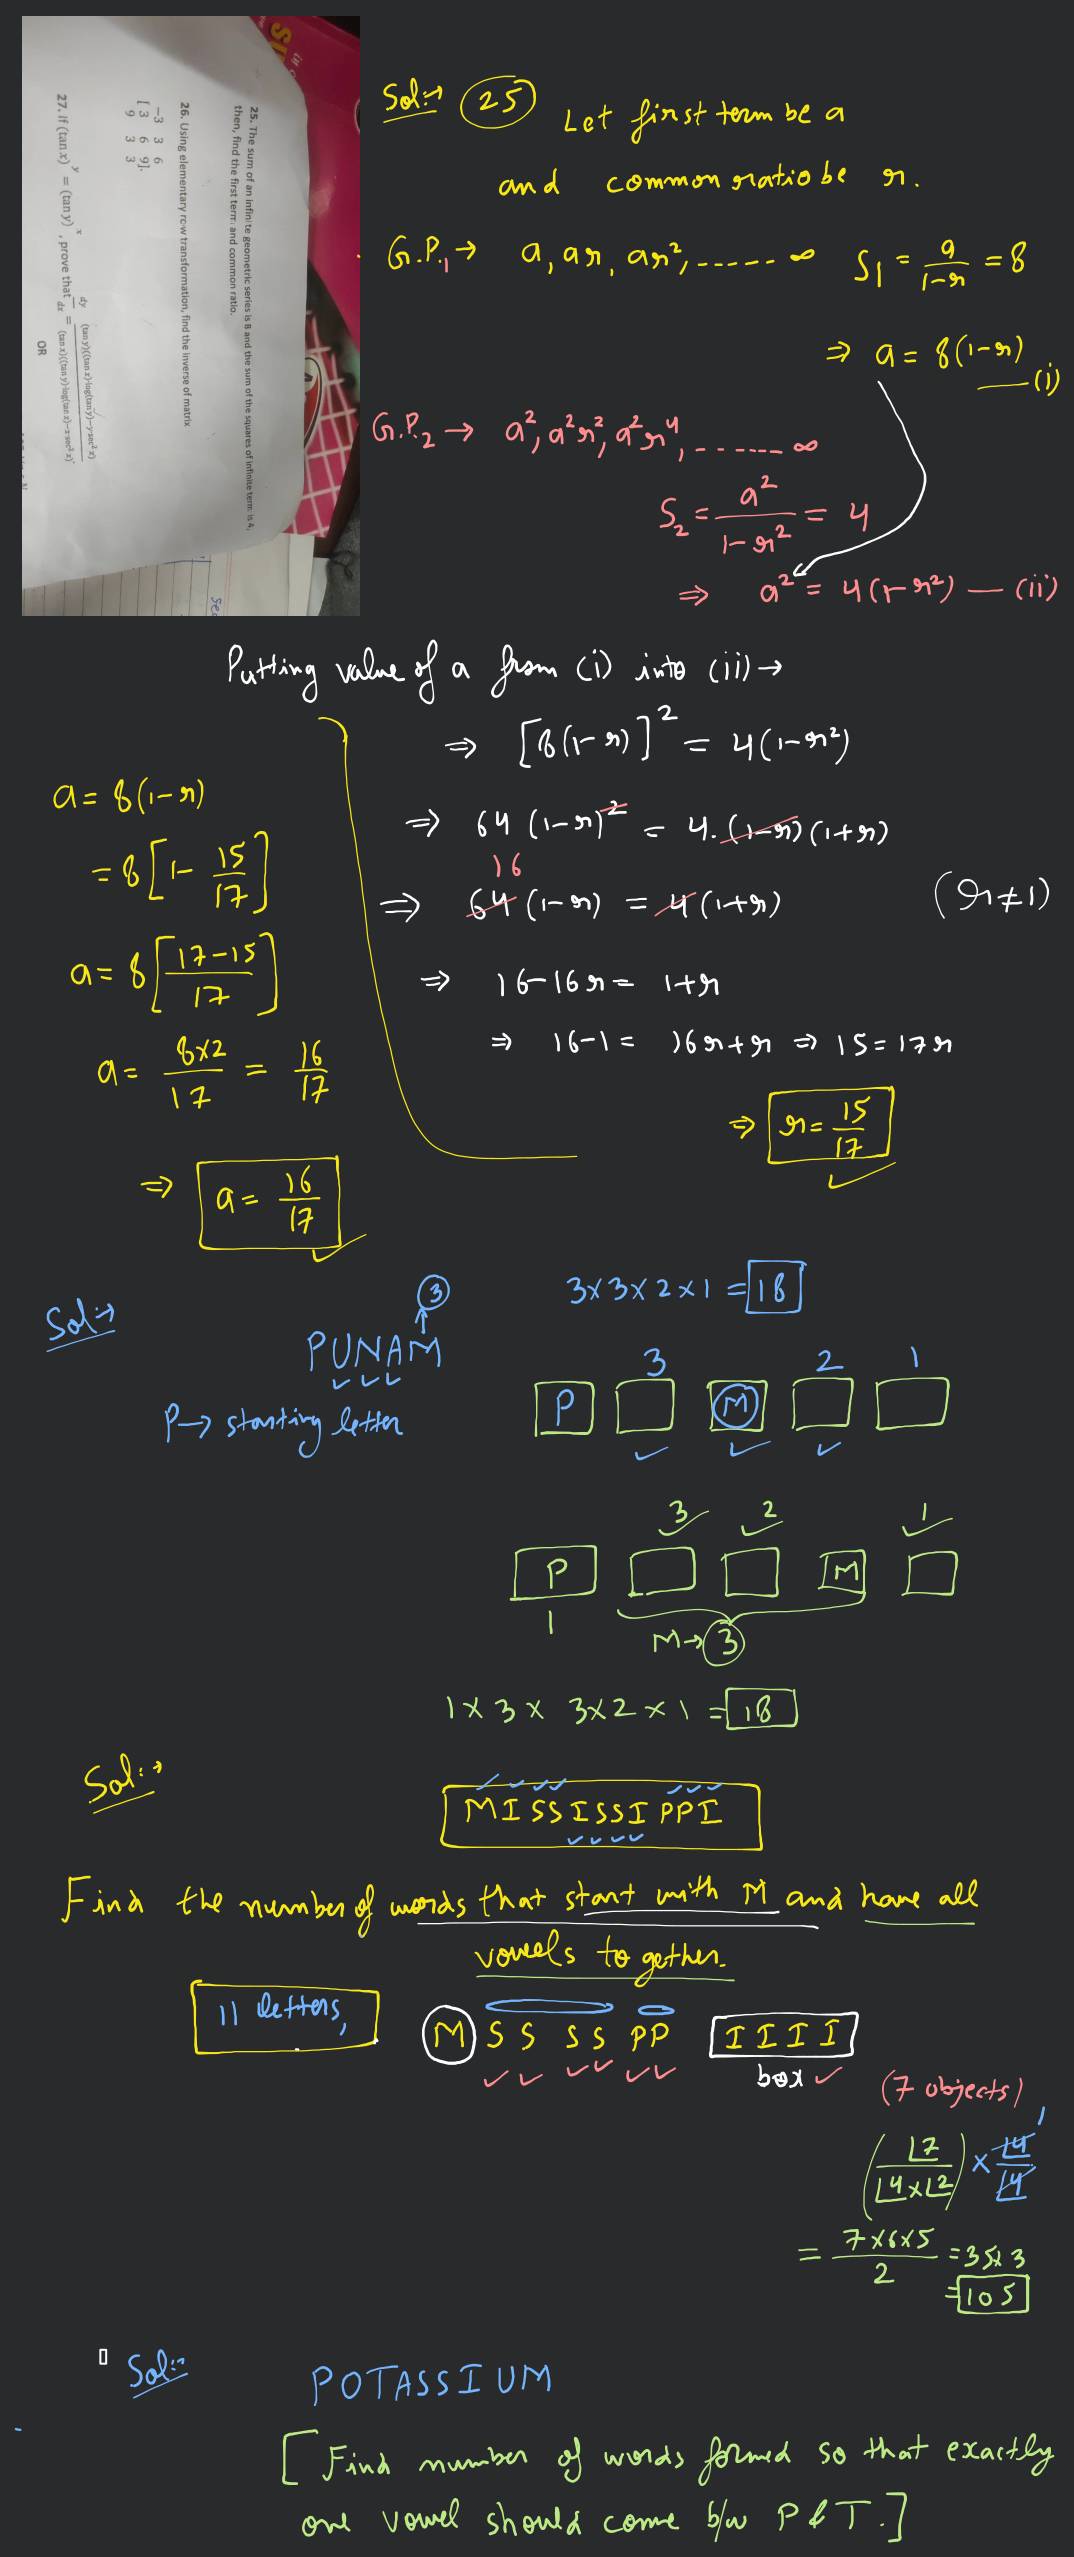 25. The sum of an infinite geometric series is 8 and the sum of the squares of infinite term is 4,
then, find the first term and common ratio.
26. Using elementary row transformation, find the inverse of matrix
-3 3 6
[ 3 6 9].
9 3 3
27. If (tan x)^y = (tan y)^x, prove that dy/dx = (tan y)((tan x)·log(tan y)−y·sec² x) / (tan x)((tan y)·log(tan x)−x·sec² x)
OR
Sol:→ (25) Let first term be a
and common ratio be r.
G.P.₁ → a, ar, ar², ----- ∞ S₁ = a/(1-r) = 8
⇒ a = 8(1-r) — (i)
G.P.₂ → a², a²r², a²r⁴, ------ ∞
S₂ = a²/(1-r²) = 4
⇒ a² = 4(1-r²) — (ii)
Putting value of a from (i) into (ii) →
⇒ [8(1-r)]² = 4(1-r²)
⇒ 64 (1-r)² = 4.(1-r)(1+r)
16
⇒ 64 (1-r) = 4(1+r) (r≠1)
⇒ 16-16r = 1+r
⇒ 16-1 = 16r+r ⇒ 15=17r
⇒ r = 15/17
a = 8(1-r)
= 8[1- 15/17]
a = 8[17-15/17]
a = 8×2/17 = 16/17
⇒ a = 16/17
Sol:→
3
PUNAM
P→ starting letter
3×3×2×1 = 18
3 2 1
P M
3 2 1
P M
1
M→3
1×3× 3×2×1 = 18
Sol:→
MISSISSIPPI
Find the number of words that start with M and have all
vowels together.
11 letters,
M S S S S P P I I I I
box
(7 objects)
(⌊7/⌊4×⌊2) × ⌊4/⌊4 1
= 7×6×5/2 = 35×3
= 105
Sol:→
POTASSIUM
[Find number of words formed so that exactly
one vowel should come b/w P & T.]